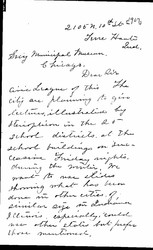 2105 N. 10th St
Terre Haute
Ind.
Municipal Museum,
Chicago.
Dear Sir
Civic League of this The
city are planning to give
lectures, illustrated by
stereopticon in the 20
school districts, at the
school buildings on suc-
cessive Friday nights,
during the winter. We
want to use slides
showing what has been
done in other cities of
similar size in Indiana
Illinois especially, could
use other slides but prefer
those mentioned.